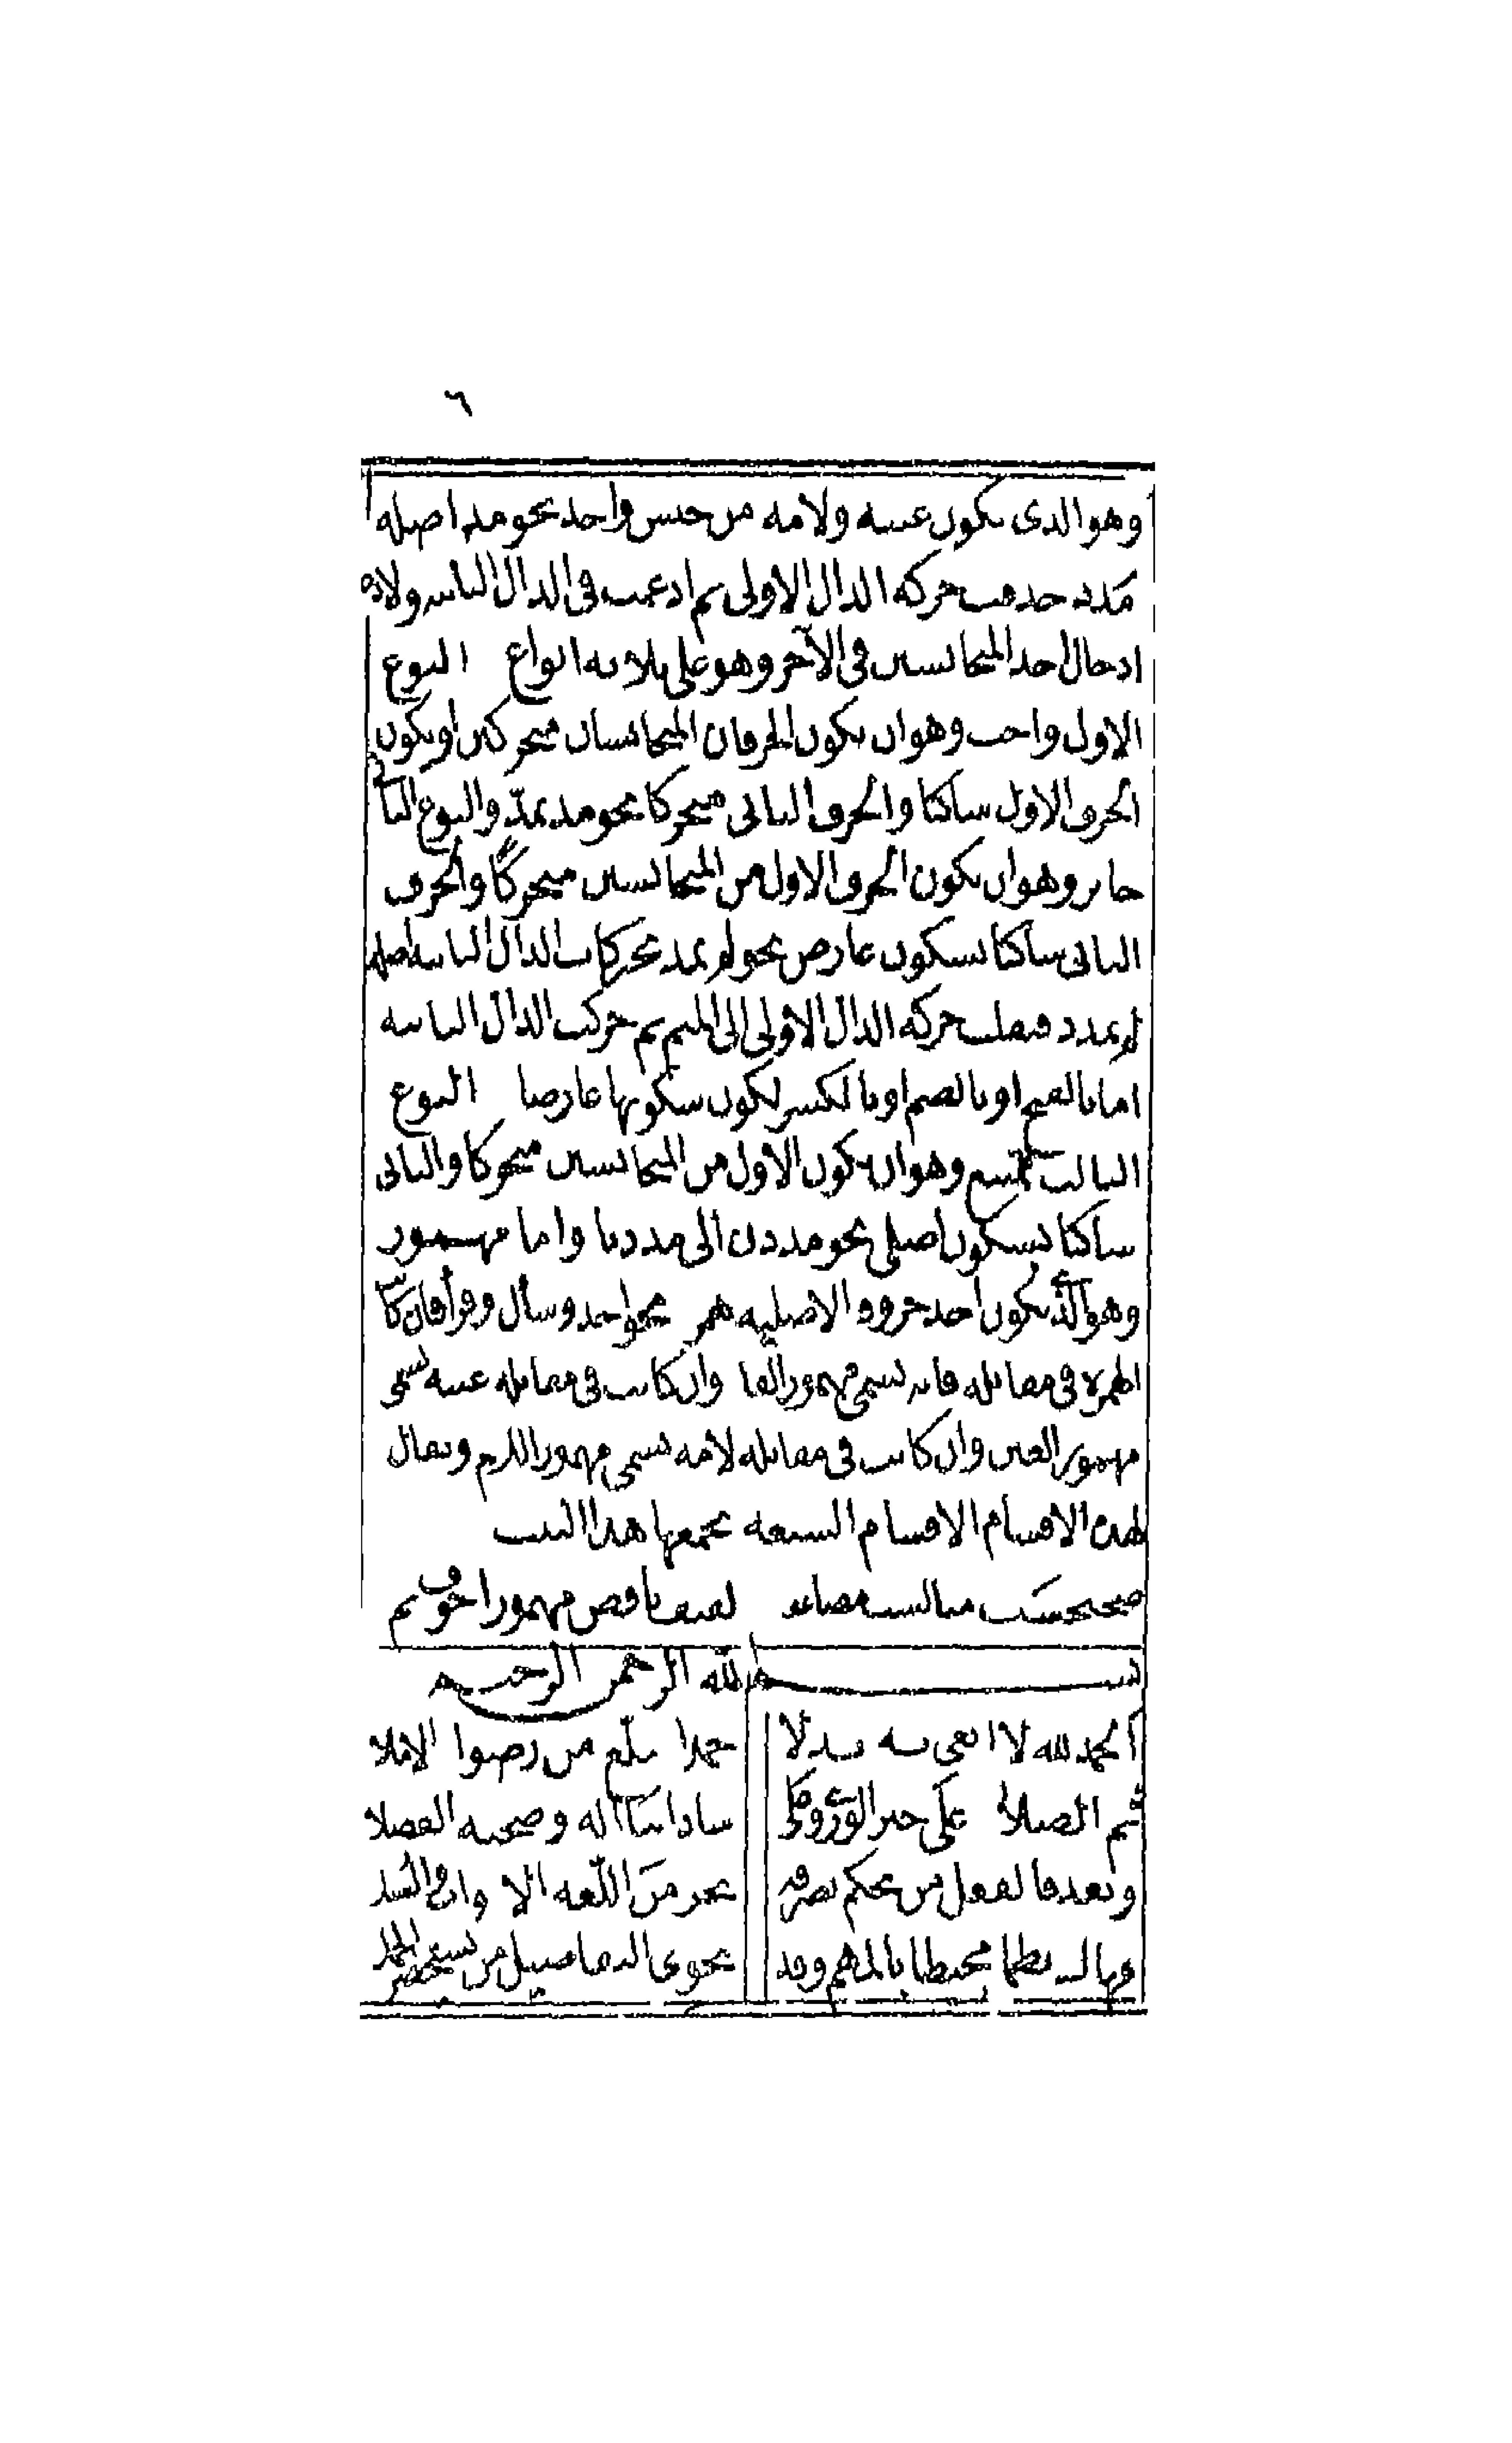 ٦
وهو الذى يكون عينه ولامه من جنس واحد نحو مد اصله
مدد حذفت حركة الدال الاولى ثم ادغمت فى الدال الثانيه
ادخال احد المتجانسين فى الآخر وهو على ثلاثة انواع النوع
الاول واجب وهو ان يكون الحرفان المتجانسان متحركين او يكون
الحرف الاول ساكنا والحرف الثانى متحركا نحو مد يمدّ والنوع الثانى
جايز وهو ان يكون الحرف الاول من المتجانسين متحركًا والحرف
الثانى ساكنا بسكون عارض نحو لم يمد بحركات الدال الثانيه اصله
لم يمدد فنقلت حركة الدال الاولى الى الميم ثم حركت الدال الثانيه
اما بالفتح او بالضم او بالكسر لكون سكونها عارضا النوع
الثالث ممتنع وهو ان يكون الاول من المتجانسين متحركا والثانى
ساكنا بسكون اصلى نحو مددن الى مددنا واما مهموز
وهو الذى يكون احد حروفه الاصليه همز نحو اخذ وسأل وقرأ فان كانت
الهمزة فى مقابله فانه يسمى مهموز الفا وان كانت فى مقابله عينه يسمى
مهموز العين وان كانت فى مقابله لامه يسمى مهموز اللام ويقال
لهذه الاقسام الاقسام السبعه يجمعها هذا البيت
صحيحست مثالست مضاعف لفيف ناقص مهموز اجوف تم
بسم الله الرحمن الرحيم
الحمد لله لا ابغى به بدلا حمدا يبلغ من رضوانه الاملا
ثم الصلاة على خير الورى وعلى ساداتنا آله وصحبه الفضلا
وبعد فالفعل من يحكم تصرفه يحز من اللغه الابواب والسبلا
فهاك نظما محيطا بالمهم وقد يحوى التفاصيل من يستحضر الجملا